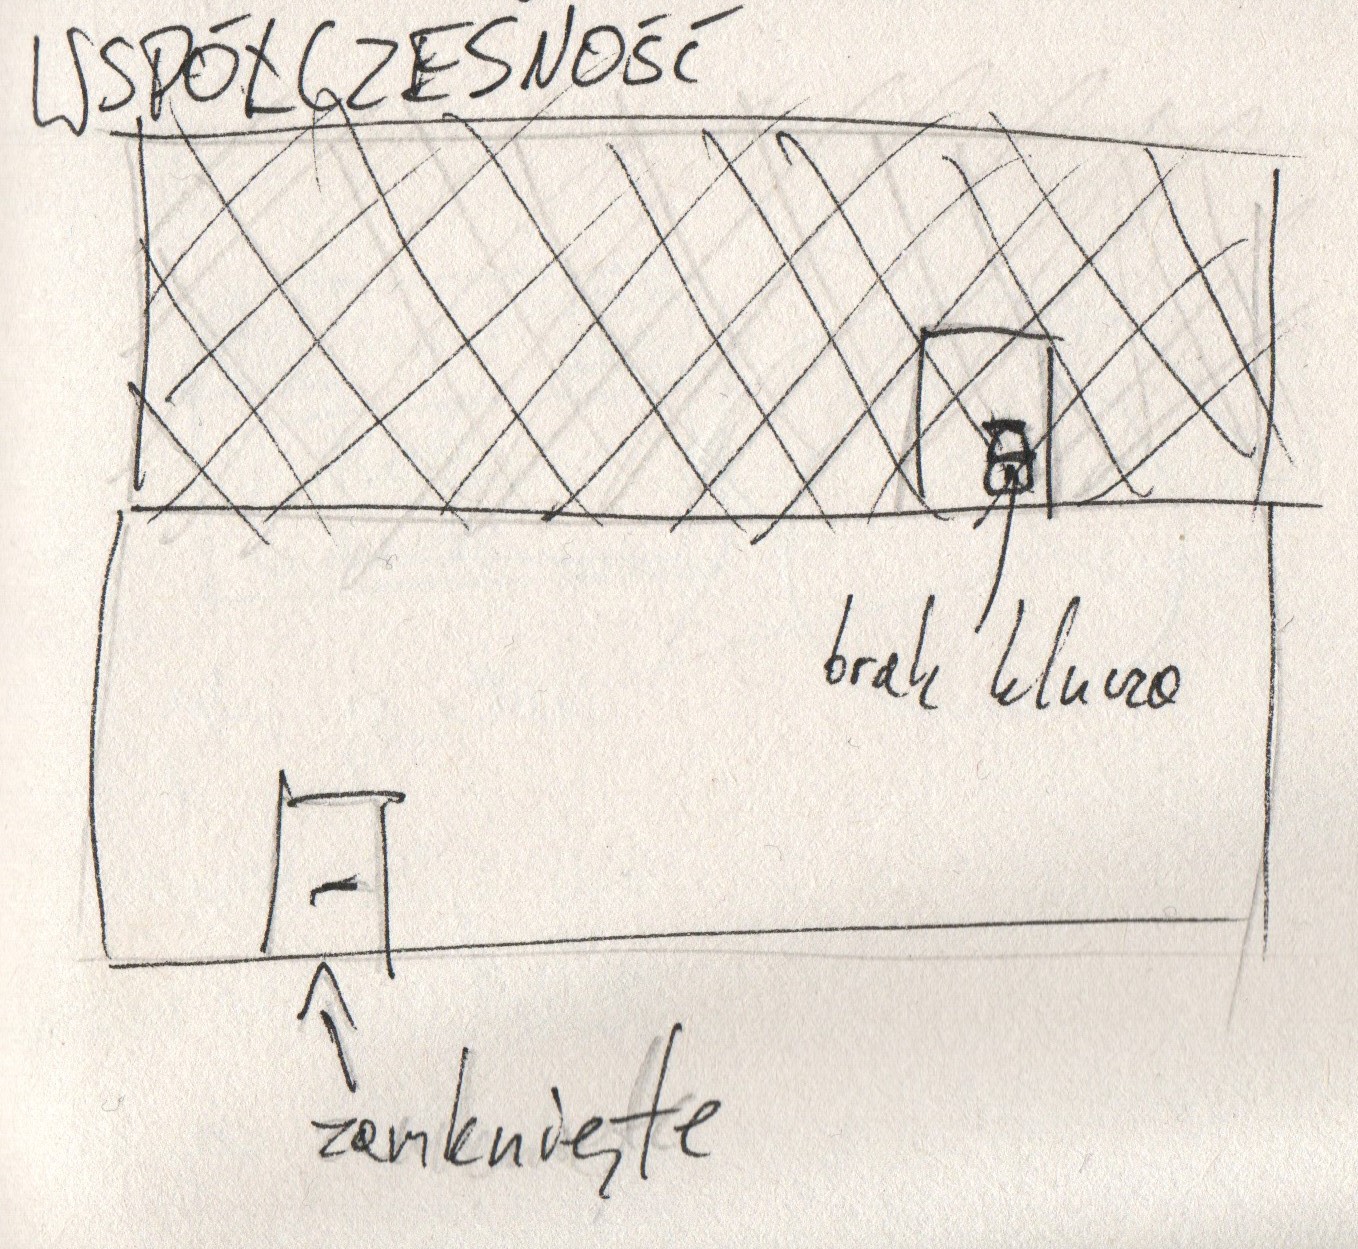 WSPÓŁCZESNOŚĆ
brak klucza
zamknięte